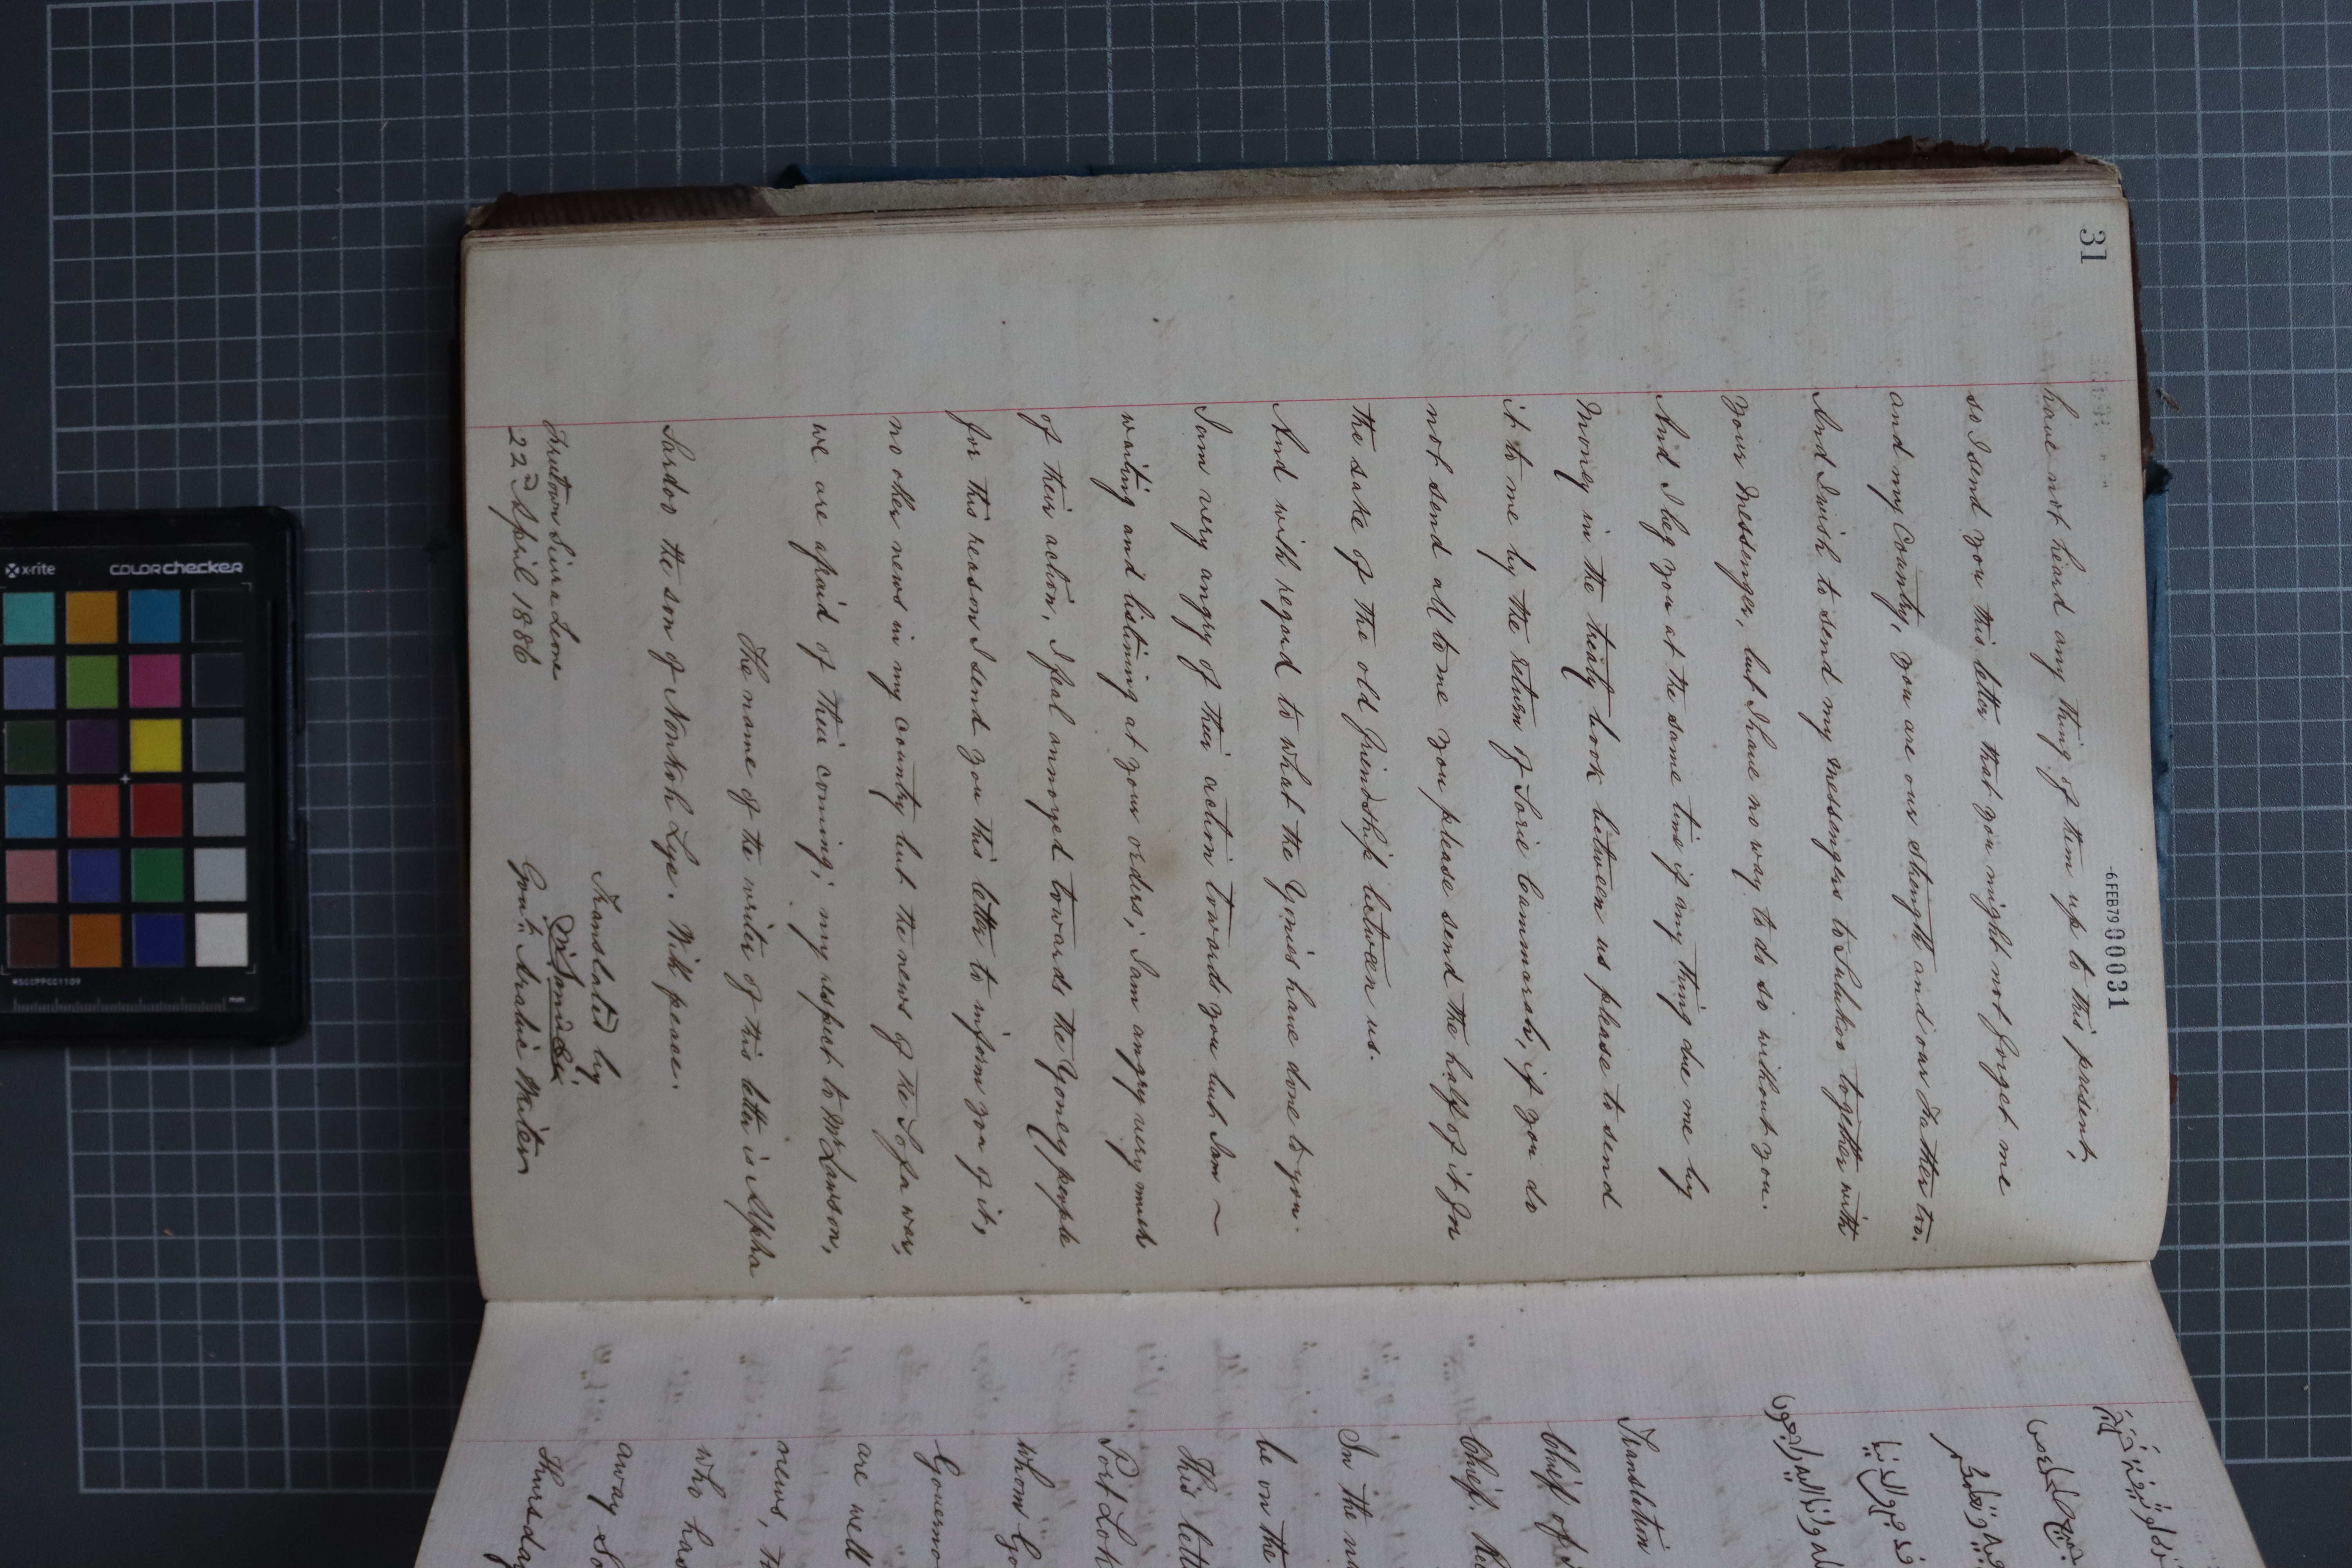 31
-6FEB79 000031
have not heard any thing of them up to this present,
so I send you this letter that you might not forget me
and my Country, you are our strength and our Father too.
And I wish to send my messengers to Sulukoo together with
your Messenger, but I have no way to do so without you.
And I beg you at the same time if any thing due me by
Money in the treaty book between us please to send
it to me by the return of Sorie Cammarah, if you do
not send all to me you please send the half of it for
the sake of the old friendship between us.
And with regard to what the Yonies have done to you
I am very angry of their action towards you but I am ~
waiting and listining at your orders; I am angry very much
of their action, I feal annoyed towards the Yoney people
for this reason I send you this letter to inform you of it,
no other news in my country but the news of the Sofa war,
we are afraid of their coming; my respect to Mr Lawson,
The name of the writer of this letter is Alpha
Sardoo the son of Nonkoh Lye. With peace.
Translated by
Freetown Sierra Leone
22d April 1886
Govt. Arabic Writer
Translation
Chief of
Chief.
In the
be on the
This lett
Port Lok
whom Go
Governo
are well
news, th
who has
away So
Thursday
x-rite
colorchecker
MSCCPPCC1109
mm